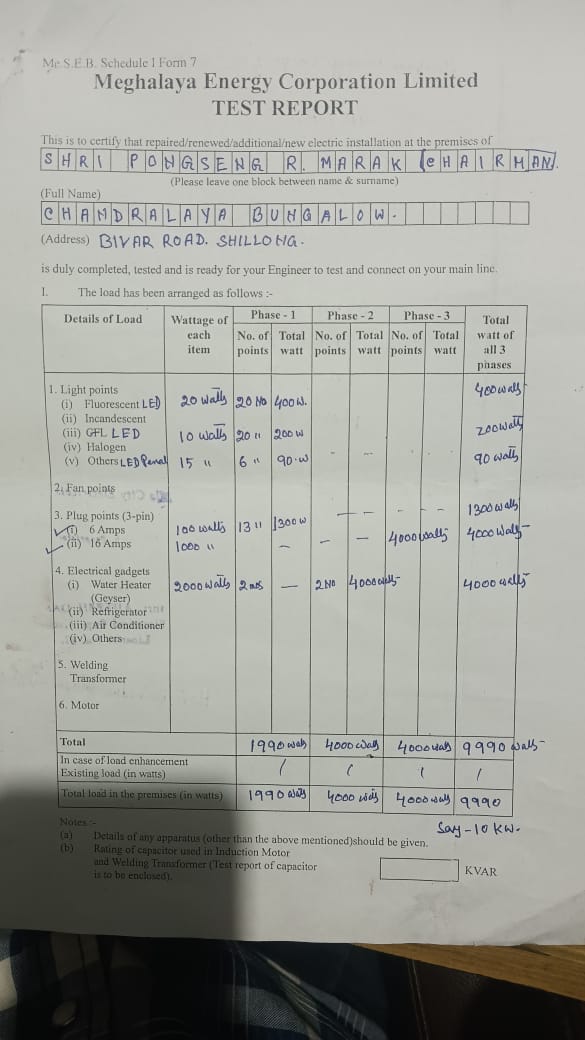 Me.S.E.B. Schedule I Form 7
Meghalaya Energy Corporation Limited
TEST REPORT
This is to certify that repaired/renewed/additional/new electric installation at the premises of
SHRI PONGSENG R. MARAK (CHAIRMAN).
(Please leave one block between name & surname)
(Full Name)
CHANDRALAYA BUNGALOW.
(Address) BIVAR ROAD. SHILLONG.
is duly completed, tested and is ready for your Engineer to test and connect on your main line.
I. The load has been arranged as follows :-
Details of Load Wattage of each item Phase - 1 Phase - 2 Phase - 3 Total watt of all 3 phases
No. of points Total watt No. of points Total watt No. of points Total watt
1. Light points
(i) Fluorescent LED 20 watts 20 No 400 W. 400 watts
(ii) Incandescent
(iii) CFL LED 10 watts 20 " 200 W 200 watts
(iv) Halogen
(v) Others LED Panal 15 " 6 " 90.W - -- - - 90 watts
2. Fan points
3. Plug points (3-pin)
(i) 6 Amps 100 watts 13 " 1300 W — — - - 1300 watts
(ii) 16 Amps 1000 " - - - 4000 watts 4000 watts
4. Electrical gadgets
(i) Water Heater 2000 watts 2 nos — 2 No 4000 watts 4000 watts
(Geyser)
(ii) Refrigerator
(iii) Air Conditioner
(iv) Others
5. Welding
Transformer
6. Motor
Total 1990 watts 4000 watts 4000 watts 9990 watts
In case of load enhancement
Existing load (in watts) / / / /
Total load in the premises (in watts) 1990 watts 4000 watts 4000 watts 9990
Say - 10 KW.
Notes :-
(a) Details of any apparatus (other than the above mentioned)should be given.
(b) Rating of capacitor used in Induction Motor
and Welding Transformer (Test report of capacitor
is to be enclosed). KVAR